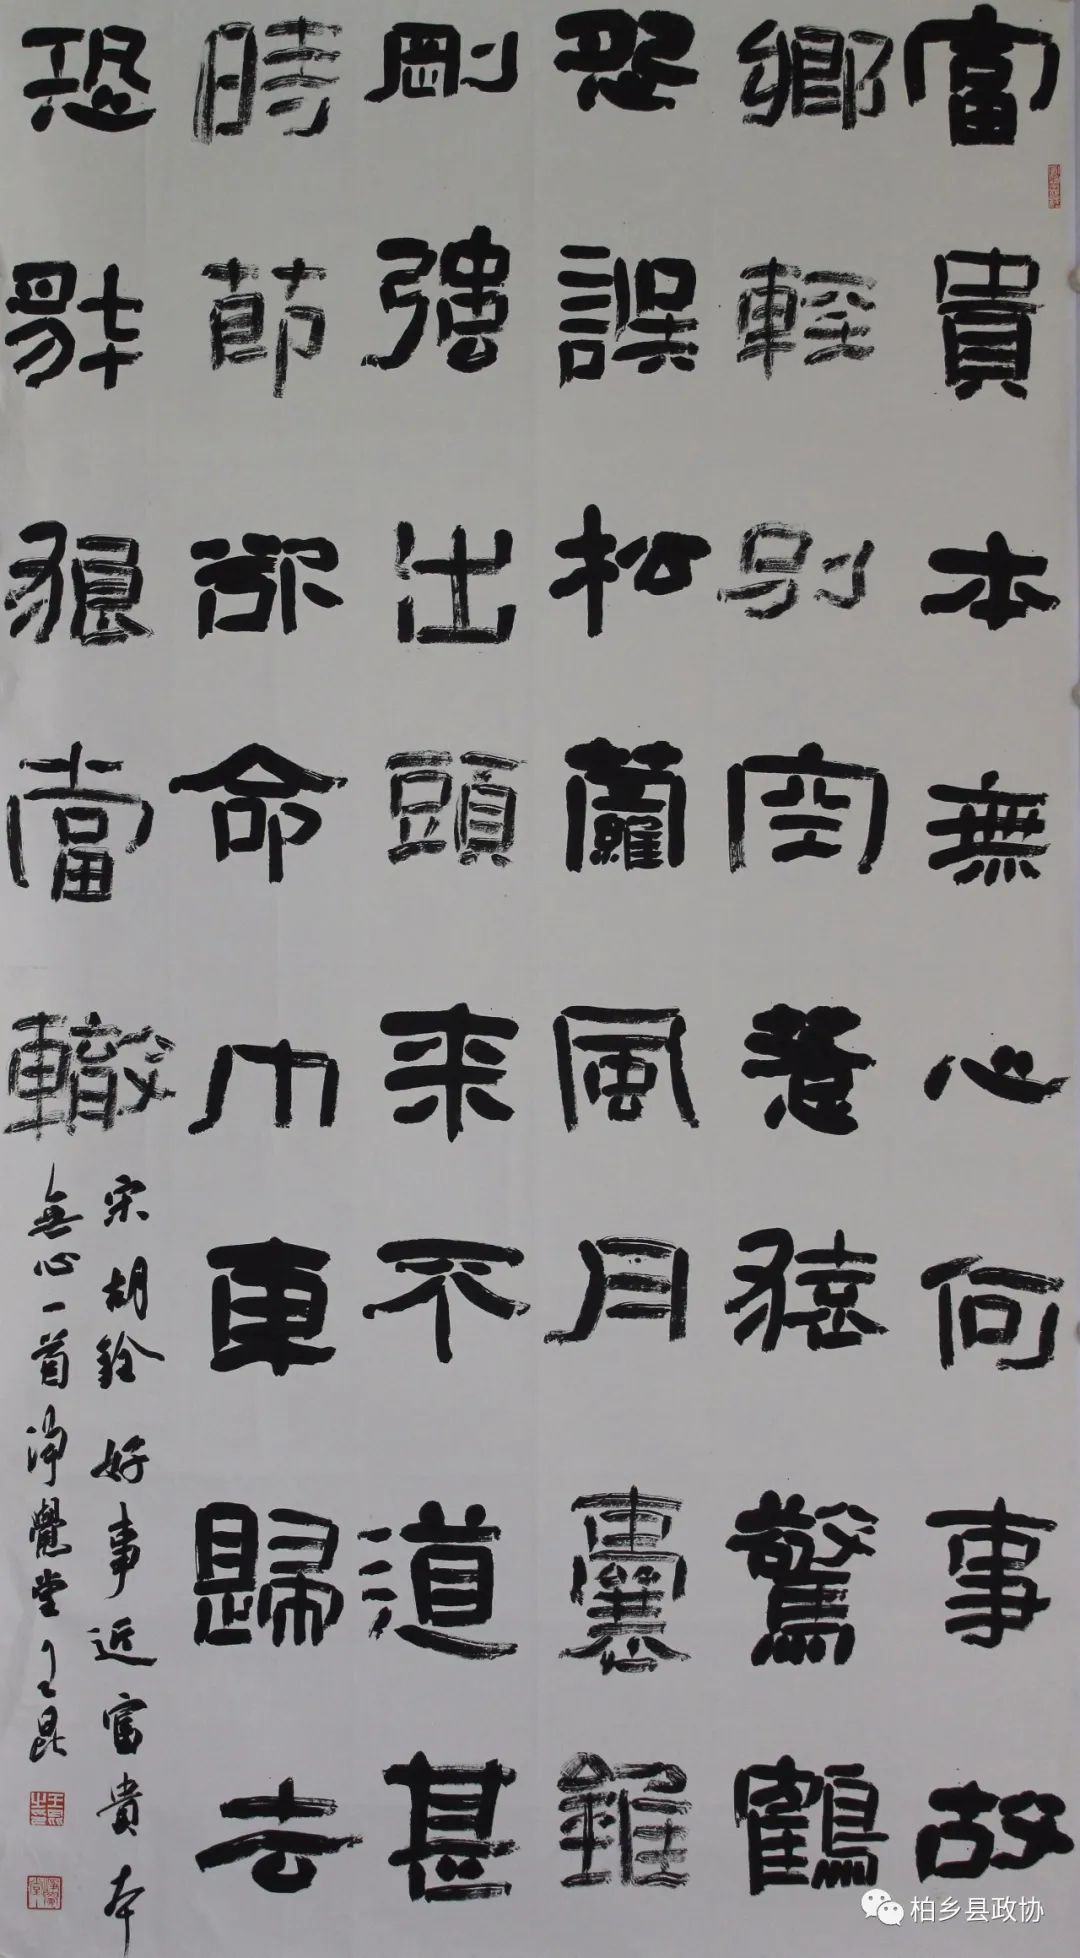 富貴本無心何事故
鄉輕別空惹猿驚鶴
怨誤松蘿風月囊錐
剛強出頭來不道甚
時節欲命巾車歸去
恐豺狼當轍
宋胡銓好事近富貴本
無心一首淨覺堂王昆
柏乡县政协